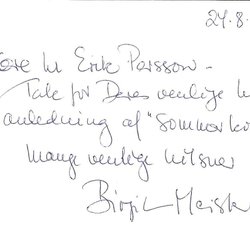 27.8.
Kære hr Erik Persson –
Tak for Deres venlige h
anledning af "Sommarko
mange venlige hilsner
Birgit